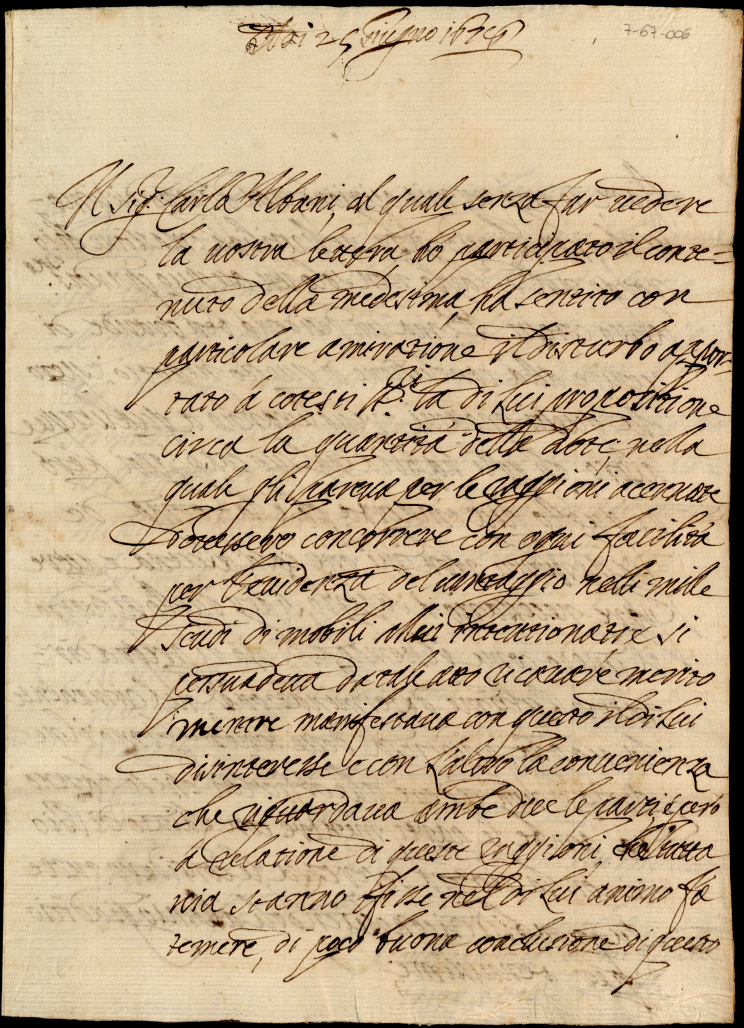 Adi 25 Giugno 1676
7-67-006
Il Sig.r Carlo Albani, al quale senza far vedere
la vostra lettera, hò participato il conte=
nuto della medesima, ha sentito con
particolare amiratione il disturbo appor=
tato à cotesti SS.ri la di lui propositione
circa la quantità della dote, nella
quale gli pareva per le raggioni accennate
potessero concorrere con ogni facilità
per l'evidenza del vantaggio nelli mille
scudi di mobili à lui intentionati, e si
persuadeva da tale atto ricavare merito
mentre manifestava con questo il di lui
disinteresse e con l'altro la convenienza
che riguardava ambe due le parti, e però
la relatione di queste raggioni, che tutta
via stanno fisse nel di lui animo fà
temere, di poco buona conclusione di questo